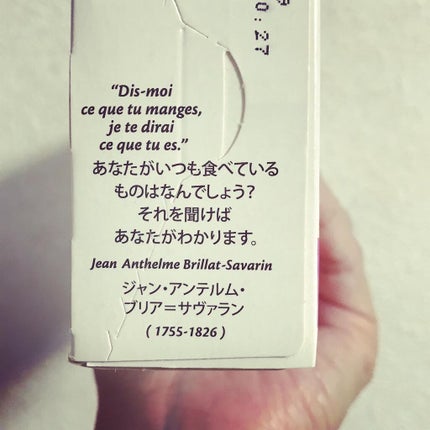 “Dis-moi
ce que tu manges,
je te dirai
ce que tu es.”
あなたがいつも食べている
ものはなんでしょう?
それを聞けば
あなたがわかります。
Jean Anthelme Brillat-Savarin
ジャン・アンテルム・
ブリア=サヴァラン
( 1755-1826 )